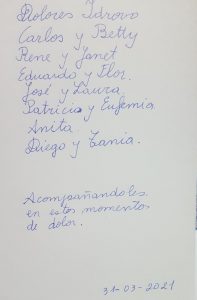 Dolores Idrovo
Carlos y Betty
Rene y Janet
Eduardo y Flor.
José y Laura
Patricia y Eufemia
Anita
Diego y Tania.
Acompañandoles
en estos momentos
de dolor.
31-03-2021